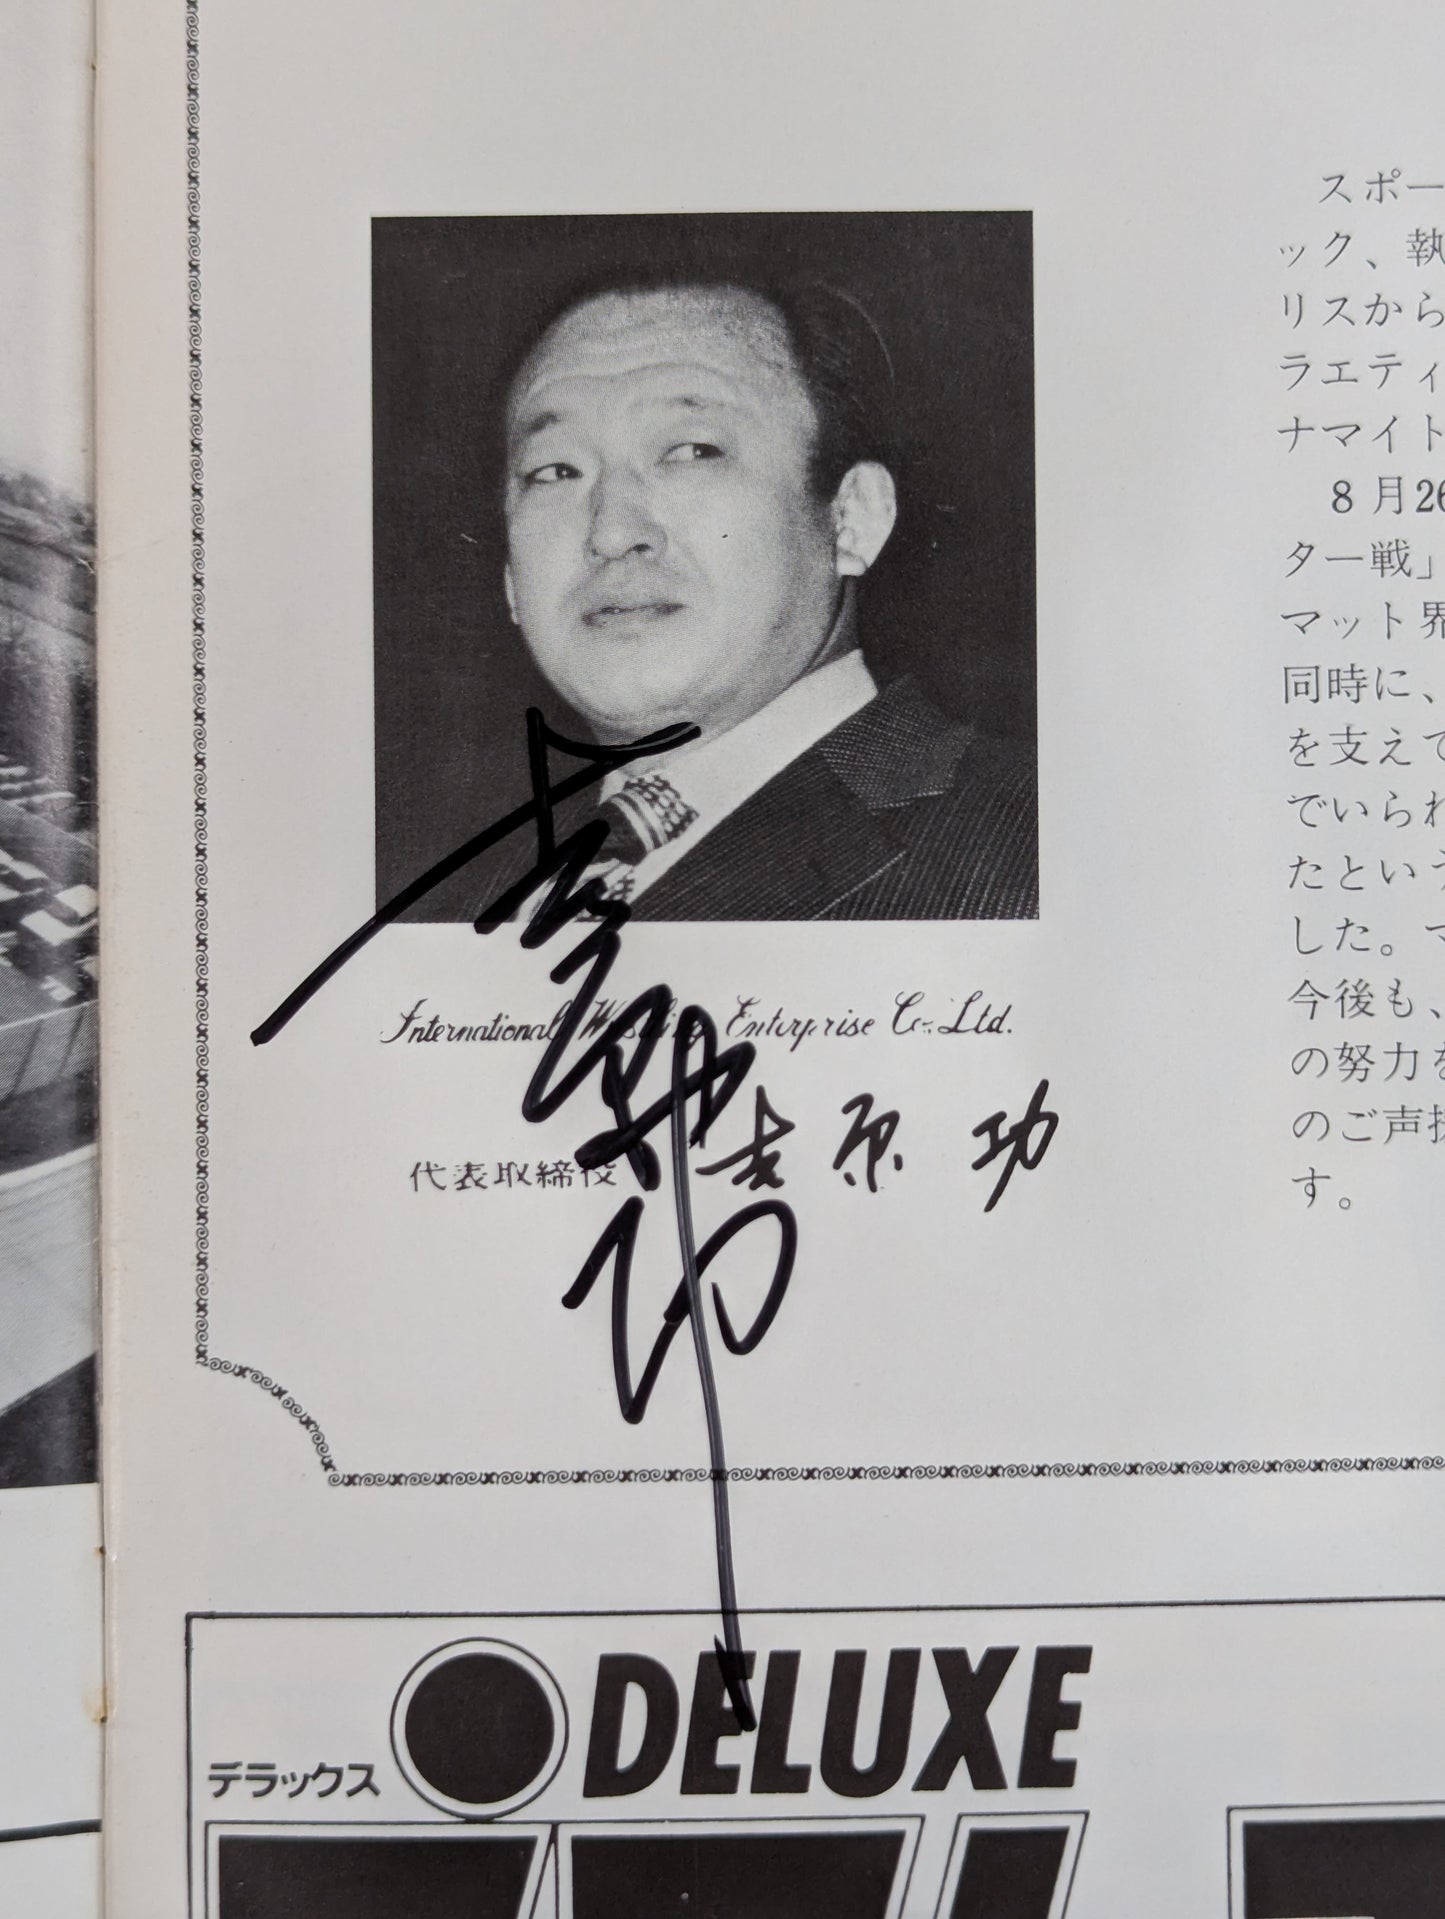 International Wrestling Enterprise Co., Ltd.
代表取締役 吉原 功
吉原功
スポー
ック、執
リスから
ラエティ
ナマイト
8月26
ター戦」
マット界
同時に、
を支えて
でいられ
たという
した。マ
今後も、
の努力を
のご声援
す。
デラックス DELUXE